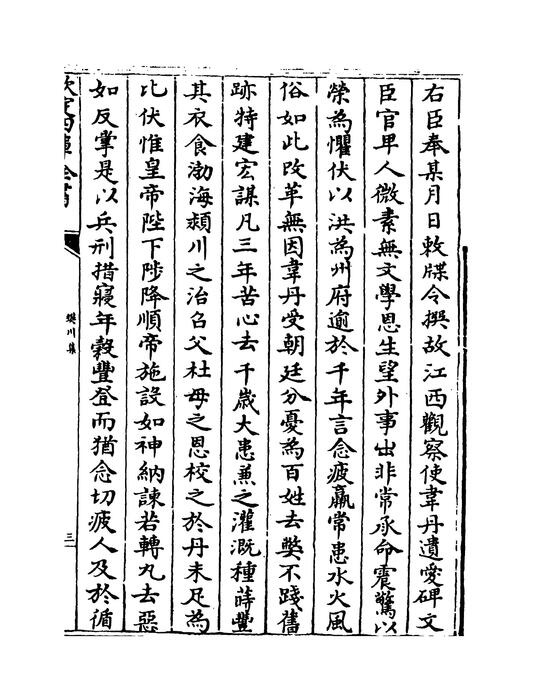 右臣奉某月日敕牒令撰故江西觀察使韋丹遺愛碑文
臣官卑人微素無文學恩生望外事出非常承命震驚以
榮為懼伏以洪為州府逾於千年言念疲羸常患水火風
俗如此改革無因韋丹受朝廷分憂為百姓去獘不踐舊
跡特建宏謀凡三年苦心去千歲大患兼之灌溉種蒔豐
其衣食渤海潁川之治召父杜母之恩校之於丹未足為
比伏惟皇帝陛下陟降順帝施設如神納諫若轉丸去惡
如反掌是以兵刑措寢年穀豐登而猶念切疲人及於循
欽定四庫全書
樊川集
三